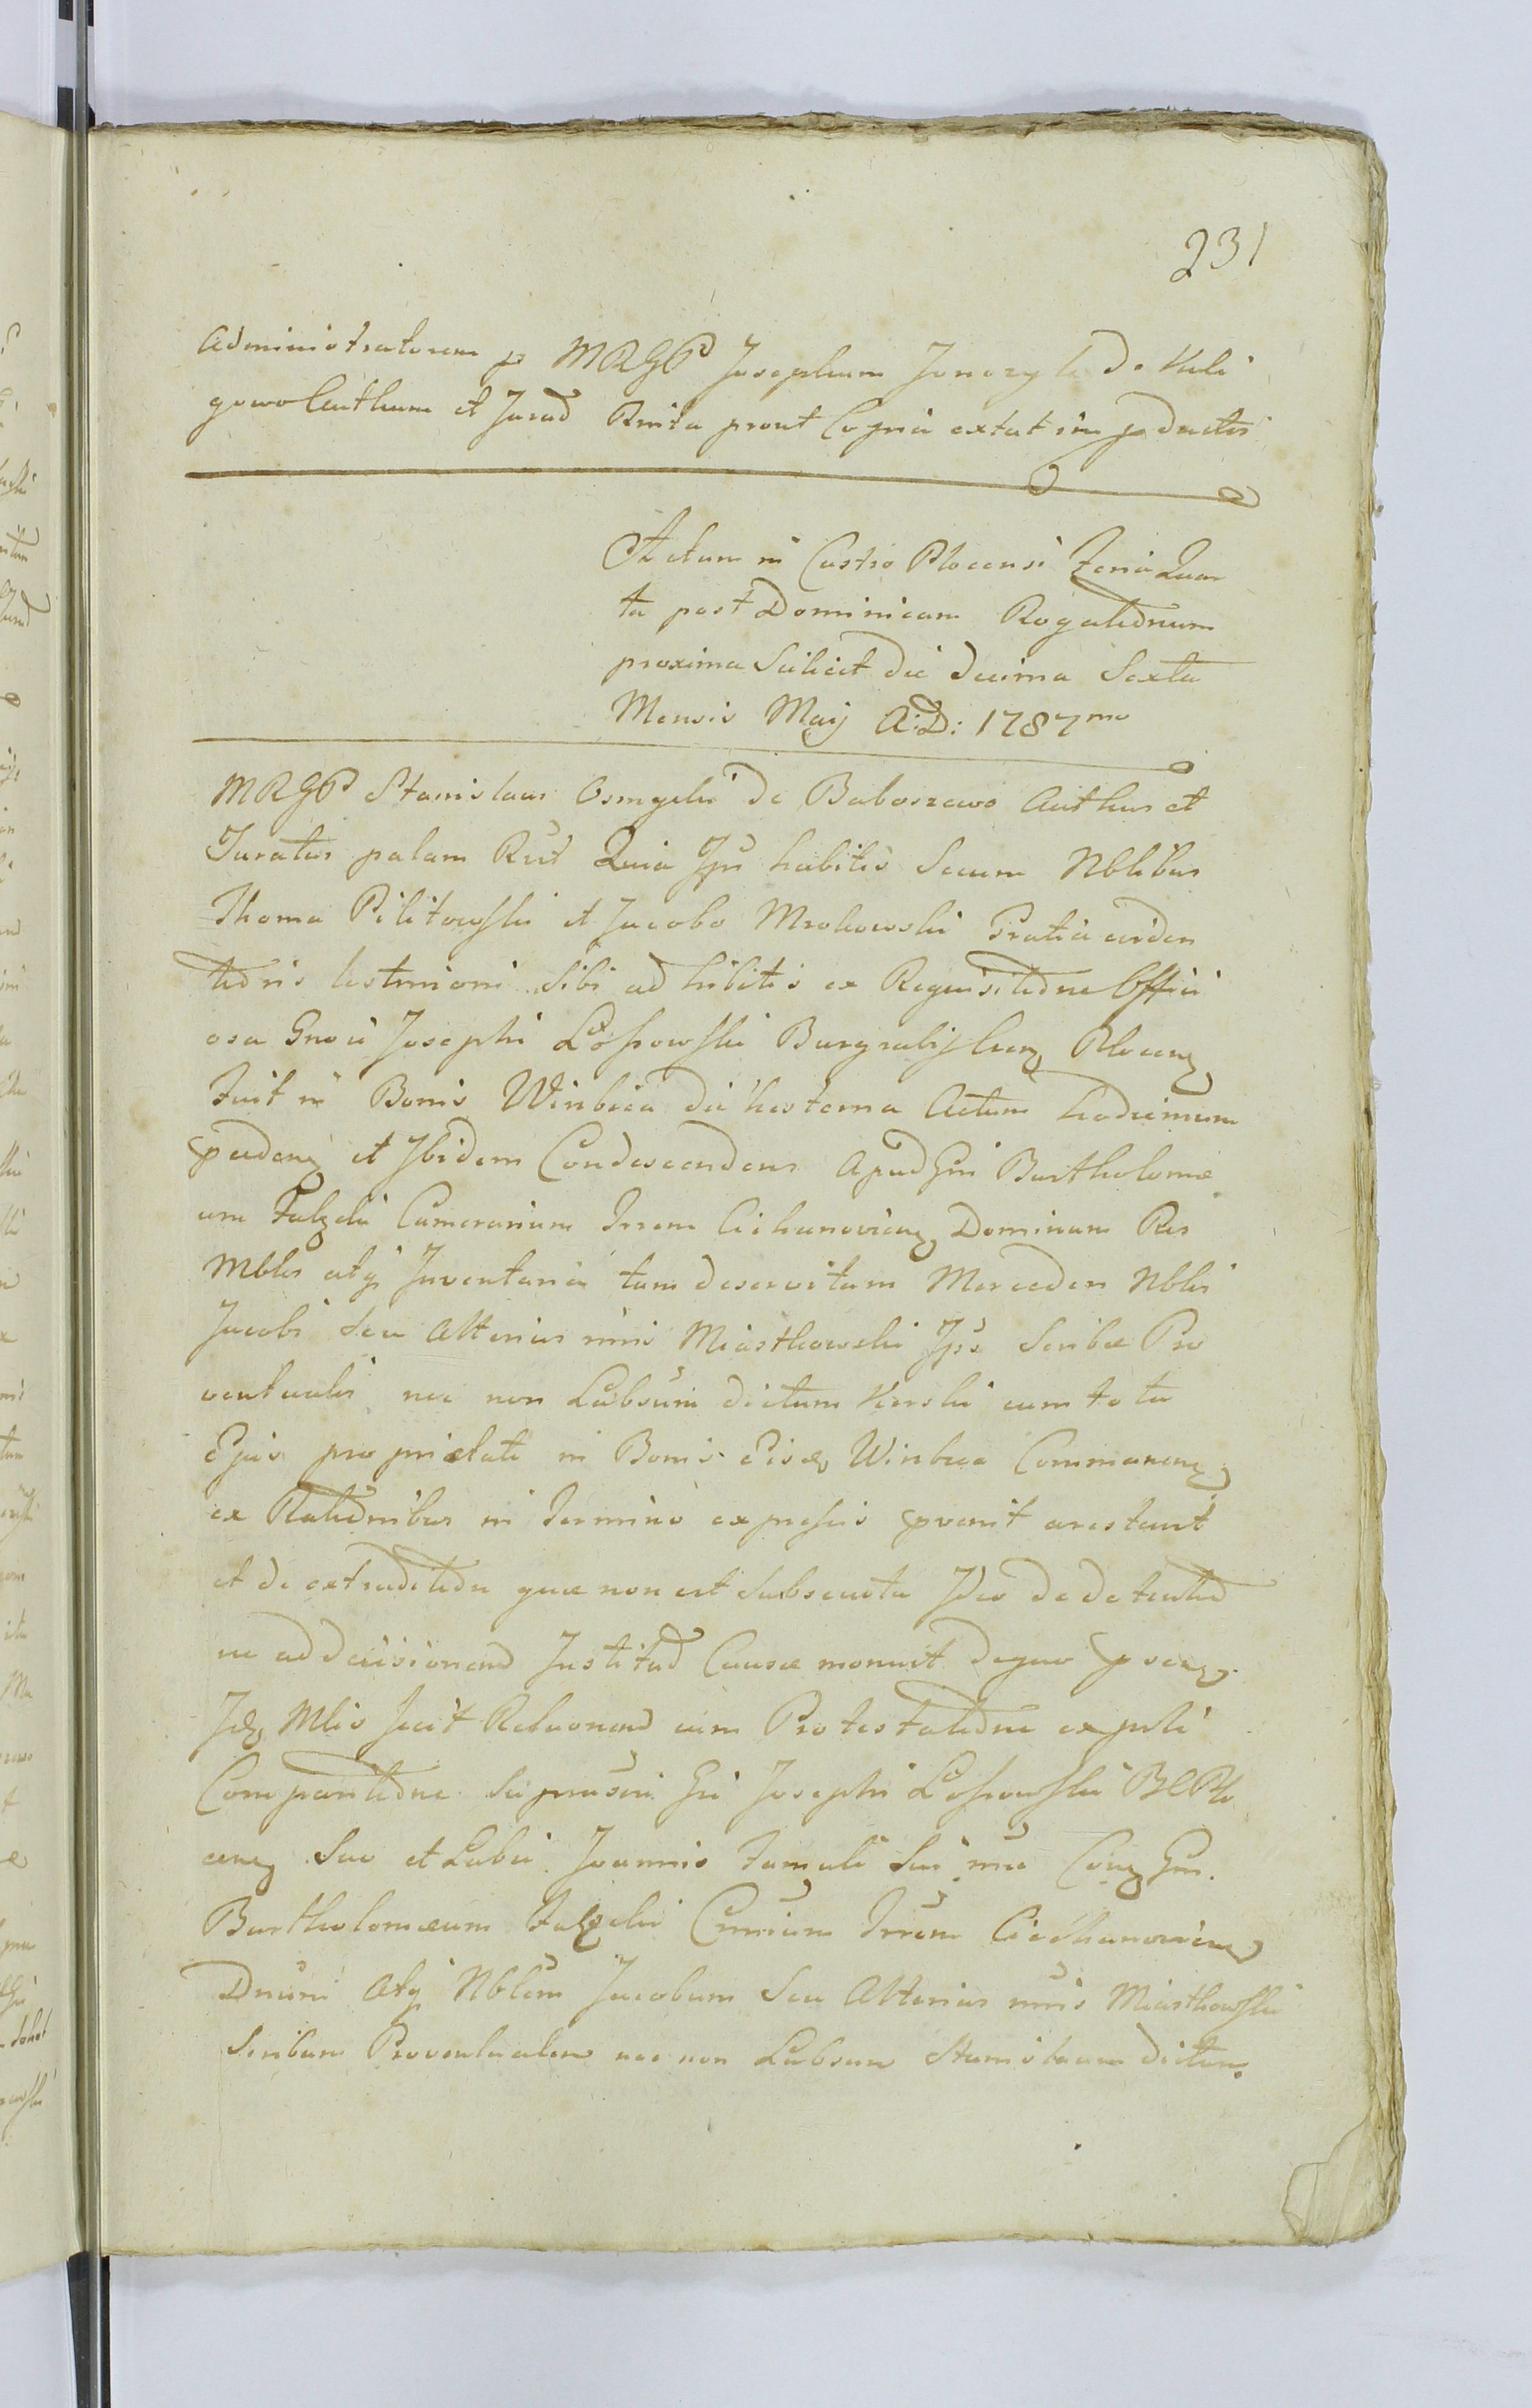 231
Administratorem p MRGP Josephum Jonczyk de Kuli
gowo Authum et Jurad Rnita prout Cognia extat in pductis
Actum in Castro Plocensi Feria Quar
ta post Dominicam Rogatednum
proxima Scilicet die decima Sexta
Mensis Maij A:D: 1787mo
MRGP Stanislaus Osmycki de Baboszewo Authus et
Juratus palam Rcut Quia Ips habitis Secum Nblibus
Thoma Pilitowski et Jacobo Mrokowski Gratia eviden
tednis testmioni Sibi adhibitis ex Requisitedne Offici
osa Gnosi Josephi Lossowski Burgrabij Plocen
Fuit in Bonis Winbica die hesterna Actum hodiernum
pceden et Ibidem Condescendens Apud Gm Bartholomæ
um Falęcki Camerarium Trrem Ciehanovien Dominum Res
Mbles atq Inventaria tum deservitam Mercedem Nblis
Jacobi Seu Alterius nnis Miastkowski Ips Scribæ Pro
ventualis nec non Labsum dictum Kerski cum tota
Ejus proprietate in Bonis Eisd Winbica Commanen
ex Ratednibus in Termino expressis pvenit arestavit
et de extraditedne quæ non est Subsecuta Ideo de detented
ne ad decisionend Institud Causæ monuit de quo psen
Id Mlis fecit Relaonend cum Protestatedne ex psli
Comparitedne Suprasni Gni Josephi Lossowski BCPlo
cen Suo et Labii Joannis Famuli Sui nne Con Gm.
Bartholomæum Falęcki Cmrium Trrem Ciechanovien
Dnum Atq Nblem Jacobum Seu Alterius nnis Miastkowski
Scribam Proventualem nec non Labsum Stanislaum dictum